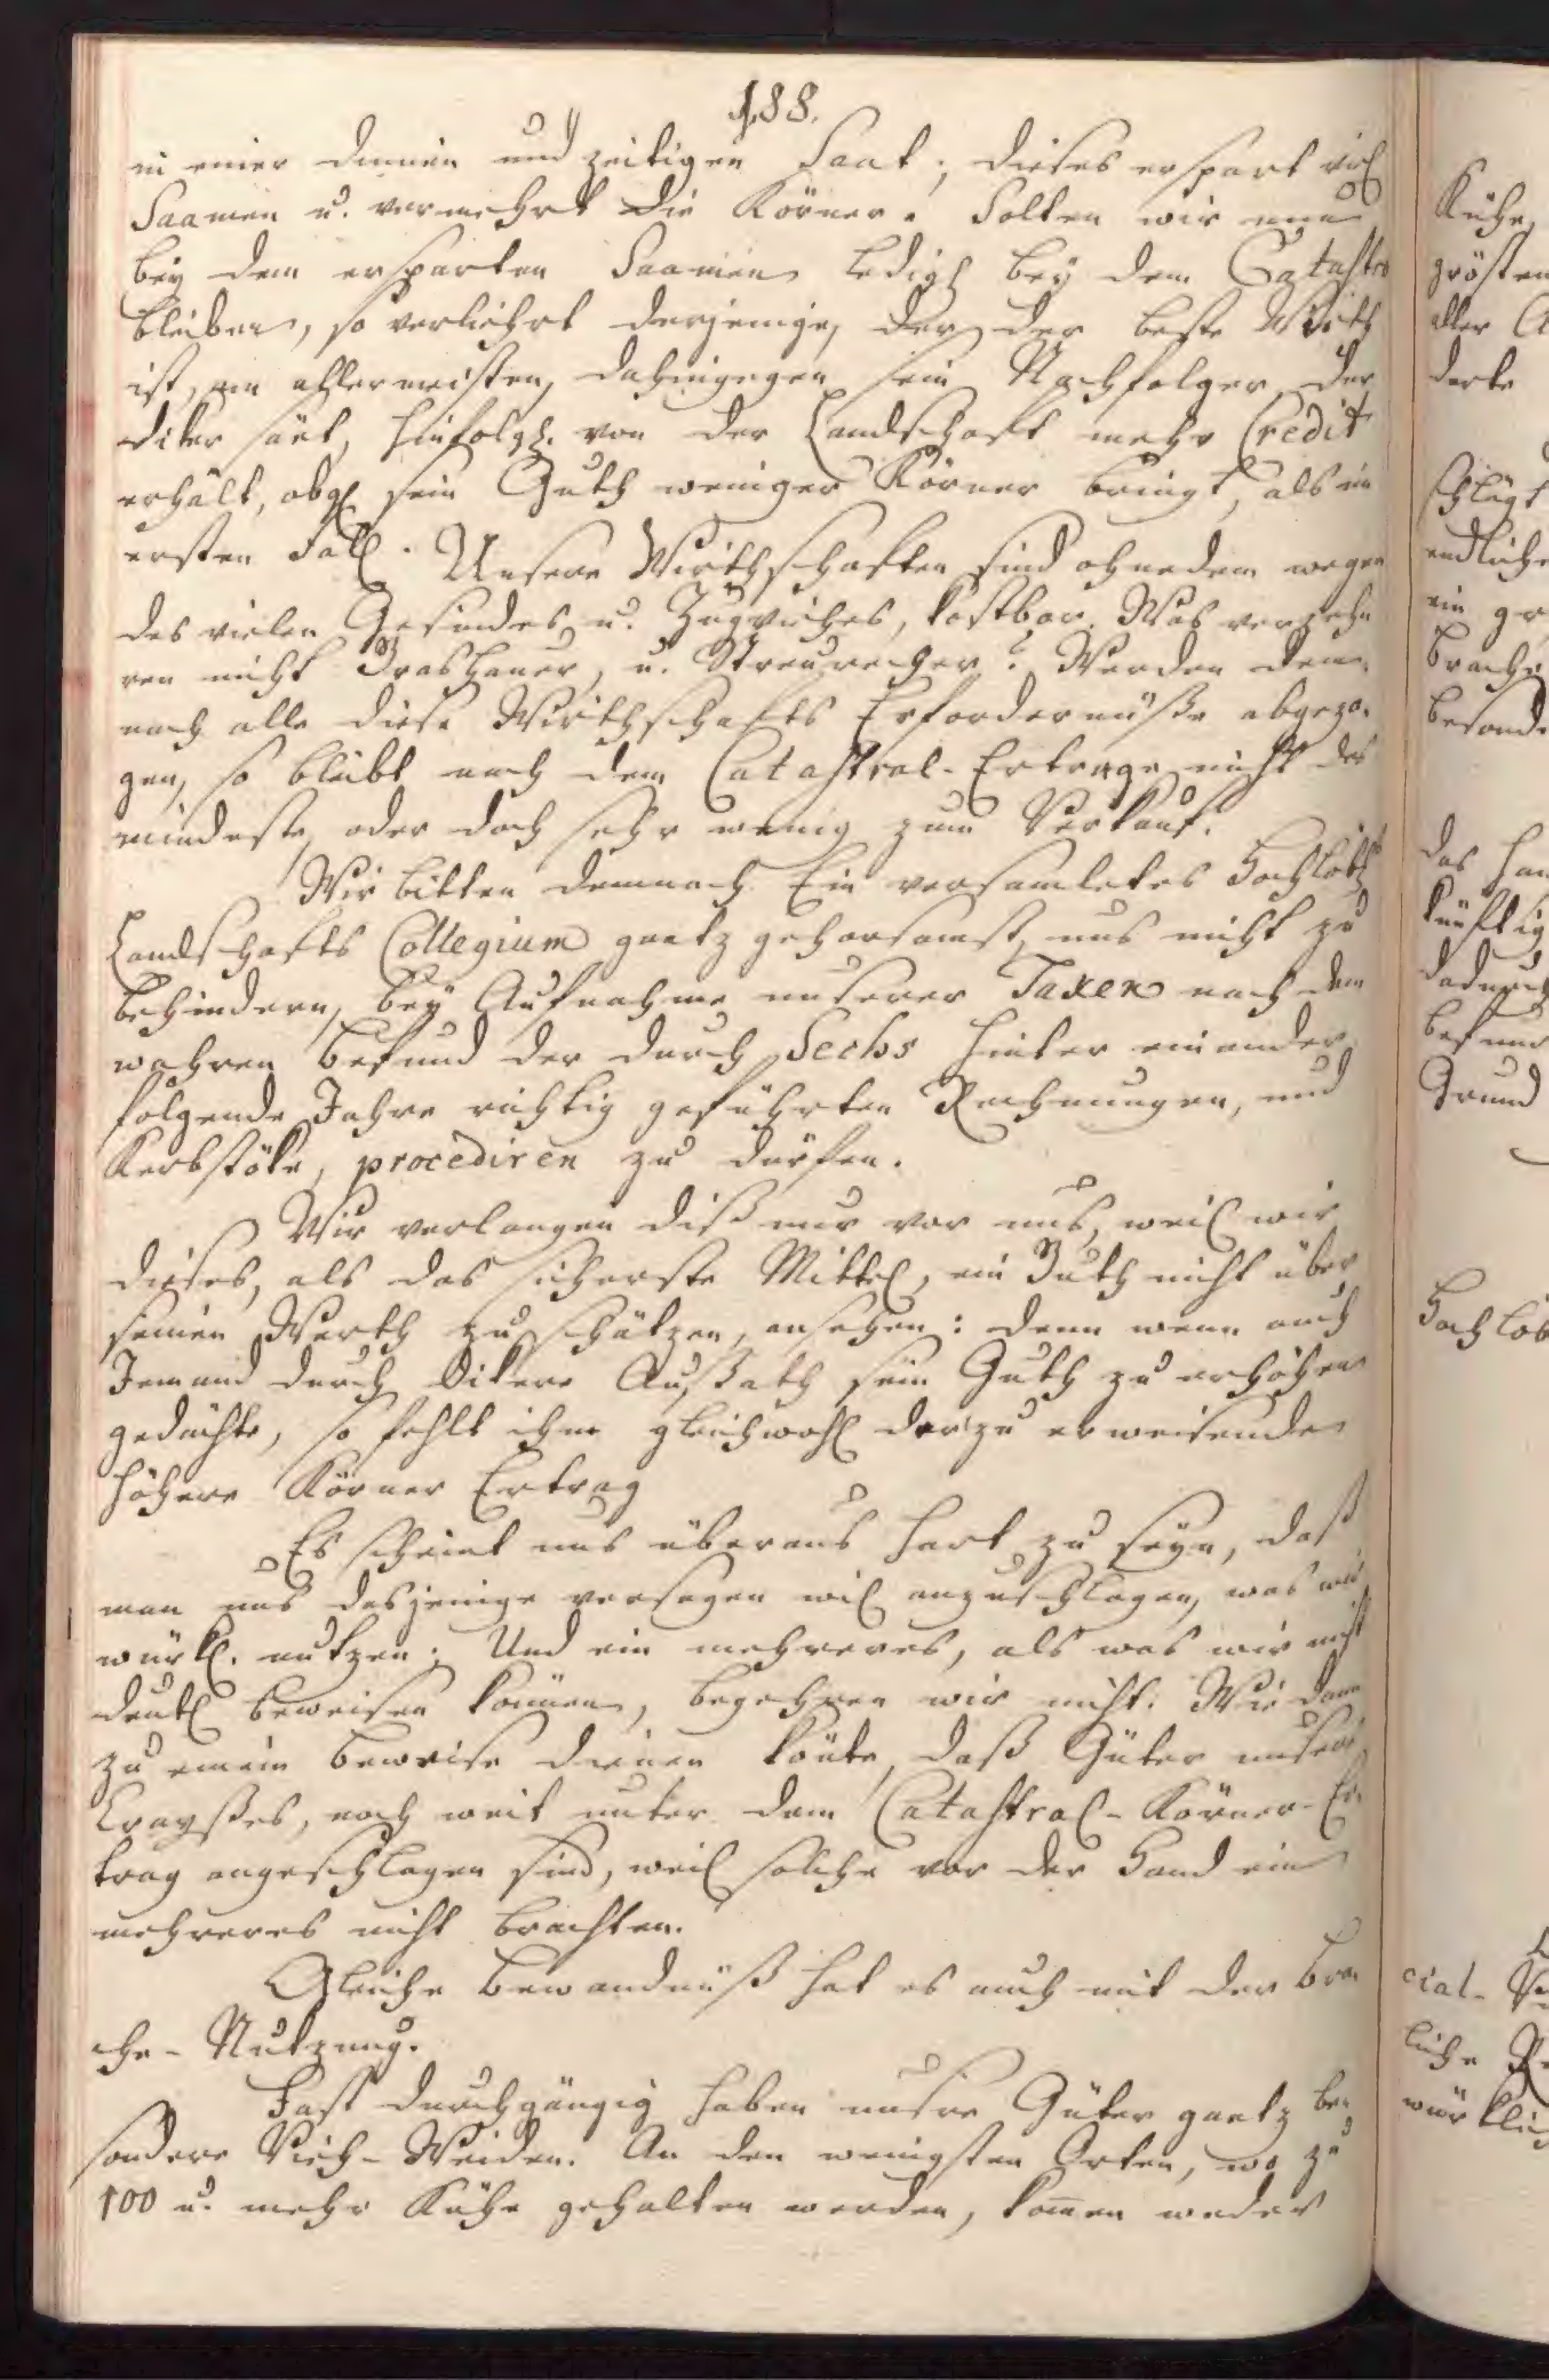 188.
in einer dünnen und zeitigen Saat; dieses erspart viel
Saamen u. vermehrt die Körner. Solten wir nun
bey dem ersparten Saamen ledigl bey dem Catastro
bleiben, so verliehrt derjenige, der der beste Wirth
ist, am allermeisten, dahingegen sein Nachfolger der
diker säet, hinfolgl. von der Landschaft mehr Credit
erhält, obgl sein Guth weniger Körner bringt, als im
ersten Fall. Unsere Wirthschaften sind ohnedem wegen
des vielen Gesindes u. Zugviehes, kostbar. Was verzeh
ren nicht Grashauer, u. Streurecher? Werden dem
nach alle diese Wirthschafts Erfordernüße abgezo-
gen, so bleibt nach dem Catastral-Ertrage nicht das
mindeste, oder doch sehr wenig zum Verkauf.
Wir bitten demnach Ein versamletes Hochlöbl
Landschafts Collegium gantz gehorsamst, uns nicht zu
behindern, bey Aufnahme unserer Taxen nach dem
wahren Befund der durch Sechs hinter einander
folgende Jahre richtig geführten Rechnungen, und
Kerbstöke, procediren zu dürfen.
Wir verlangen diß nur vor uns, weil wir
dieses, als das sicherste Mittel, ein Guth nicht über
seinen Werth zu schätzen, ansehen: denn wenn auch
Jemand durch dikere Außsath sein Guth zu erhöhen
gedächte, so fehlt ihm gleichwohl der zu erweisende
höhere Körner Ertrag
Es scheint uns überaus hart zu seyn, daß
man uns dasjenige versagen wil anzuschlagen, was wir
würkl. nutzen; Und ein mehreres, als was wir nicht
deutl beweisen können, begehren wir nicht. Wie dann
zu einem Beweise dienen könte, daß Güter unsers
Crayßes, noch weit unter dem Catastral-Körner-Er-
trag angeschlagen sind, weil solche vor der Hand ein
mehreres nicht brachten.
Gleiche Bewandnüß hat es auch mit der Bra-
che-Nutzung.
Fast durchgängig haben unsre Güter gantz be-
sondere Vieh-Weiden. An den wenigsten Orten, wo zu
100 u. mehr Kühe gehalten werden, komen weder
Kühe,
grösten
aller
derte
schlägt
endliche
ein
Brache
besond
das
künftig
dadurch
Befund
Grund
Hochlöb
cial-
liche
würklich